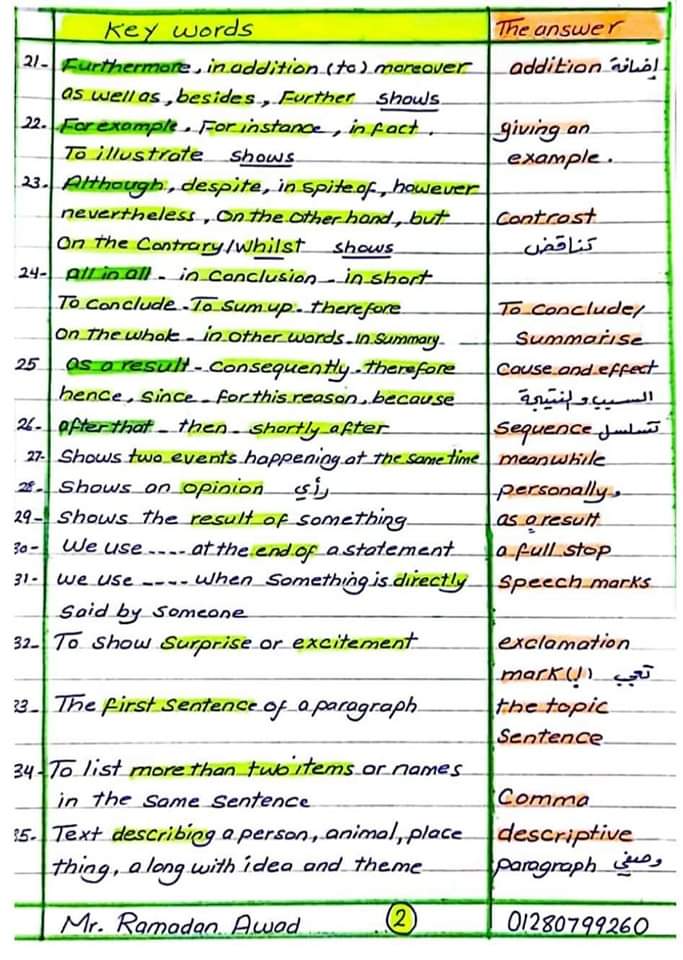 Key words The answer
21- Furthermore, in addition (to) moreover addition إضافة
as well as, besides, Further shows
22. For example, For instance, in fact. giving an
To illustrate shows example.
23. Although, despite, in spite of, however
nevertheless, on the other hand, but Contrast
On the Contrary/whilst shows تناقض
24- all in all - in conclusion - in short
To conclude - To sum up - therefore To conclude/
on the whole - in other words - In Summary. Summarise
25 as a result - consequently - therefore Cause and effect
hence, since - for this reason, because السبب والنتيجة
26- after that - then - shortly after Sequence تسلسل
27- Shows two events happening at the same time meanwhile
28- Shows an opinion رأي personally,
29- Shows the result of something as a result
30- We use ---- at the end of a statement a full stop
31- we use ---- when something is directly Speech marks
said by someone
32- To show surprise or excitement exclamation
mark (!) تعجب
33- The first sentence of a paragraph the topic
Sentence
34- To list more than two items or names
in the same sentence Comma
35- Text describing a person, animal, place descriptive
thing, a long with idea and theme paragraph وصفي
Mr. Ramadan Awad 2 01280799260